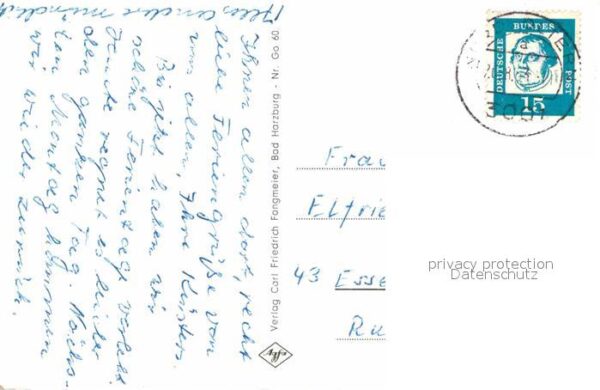 Alles andere mündlich
Ihnen allen dort, recht
liebe Feriengrüße von
uns allen, Ihre Küsters.
Bis jetzt haben wir
schöne Ferientage verlebt.
Heute regnet es leider
den ganzen Tag. Nächs-
ten Montag kommen
wir wieder zurück.
Verlag Carl Friedrich Fangmeier, Bad Harzburg - Nr. Go 60
DEUTSCHE BUNDESPOST
15
3001
Frau
Elfrie
43 Esse
Ru
privacy protection
Datenschutz